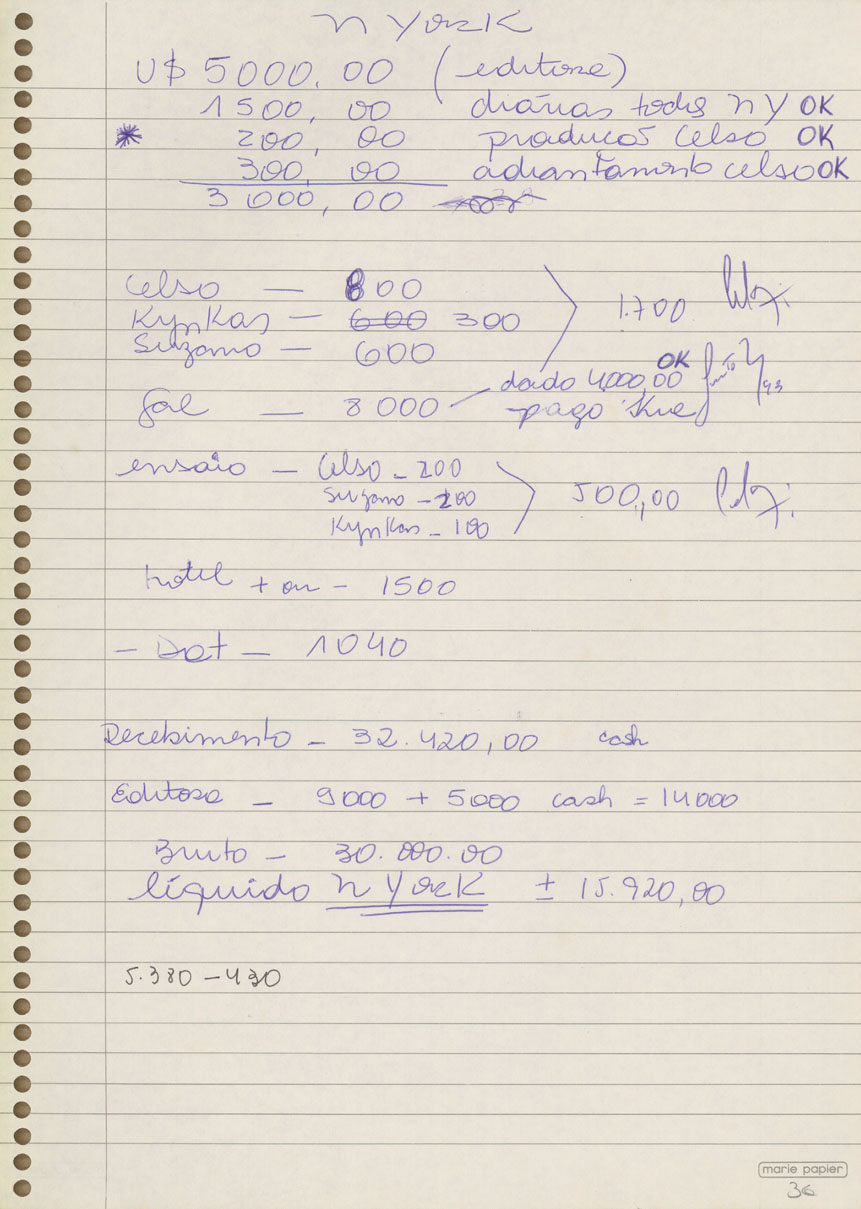 N York
U$ 5000,00 (editora)
1500,00 diárias todos NY OK
* 200,00 producão Celso OK
300,00 adiantamento celso OK
3000,00
Celso — 800
KynKas — 600 300 1.700
Suzano — 600
OK
dado 4,000,00
Gal — 8000 pago
ensaio — Celso - 200
Suzano - 200 500,00
KynKas - 100
hotel + on - 1500
- Dat - 1040
Recebimento - 32.420,00 cash
Editora - 9000 + 5000 cash = 14000
Bruto - 30.000.00
líquido N York ± 15.920,00
5.380 - 430
marie papier
36